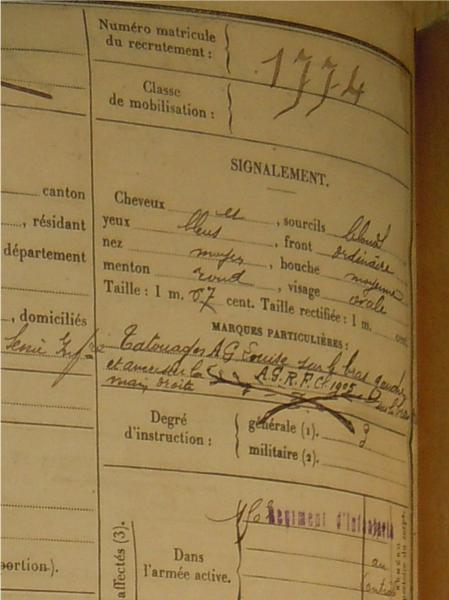 Numéro matricule
du recrutement :
1774
Classe
de mobilisation :
SIGNALEMENT.
canton
Cheveux et , sourcils blond
, résidant
yeux bleus , front ordinaire
département
nez moyen , bouche moyenne
menton rond , visage ovale
Taille : 1 m. 67 cent. Taille rectifiée : 1 m. cent.
, domiciliés
MARQUES PARTICULIÈRES :
Tatouages A G Louise sur le bras gauche
et ancre sur la A.G.R.F.C. 1905 sur le bras
main droite
Degré
d'instruction :
générale (1). 3
militaire (2).
Régiment d'Infanterie
affectés (3).
Dans
l'armée active.
portion).
au